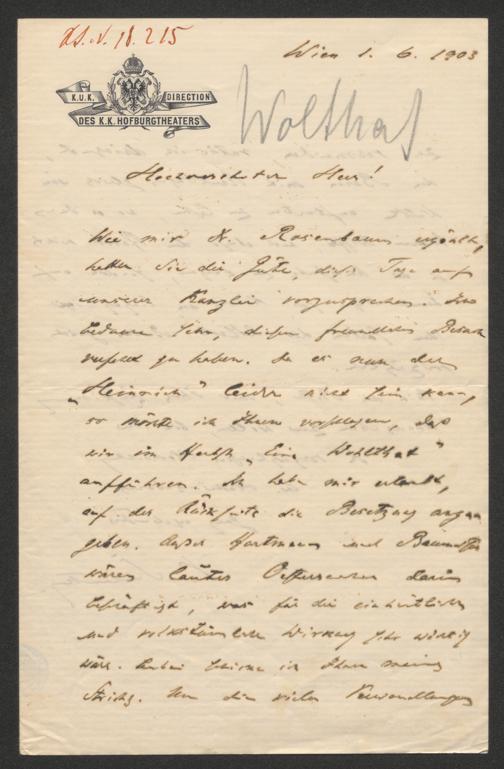 I.N. 18.215
Wien 1. 6. 1903
K.U.K. DIRECTION
DES K.K. HOFBURGTHEATERS
Wolthat
Hochverehrter Herr!
Wie mir Dr. Rosenbaum erzählt,
hatten Sie die Güte, dieser Tage auf
unserer Kanzlei vorzusprechen. Ich
bedaure sehr, diesen freundlichen Besuch
verfehlt zu haben. Da es nun der
„Heinrich" leider nicht sein kann,
so möchte ich Ihnen vorschlagen, daß
wir im Herbst „Eine Wohlthat"
aufführen. Ich habe mir erlaubt,
auf der Rückseite die Besetzung anzu-
geben. Außer Hartmann und Baumeister
wären lauter Oesterreicher darin
beschäftigt, was für die einheitliche
und volkstümliche Wirkung sehr wichtig
wäre. Anbei schicke ich Ihnen meine
Striche. Um die vielen Verwandlungen